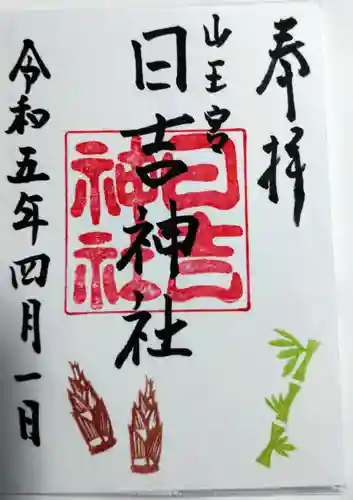 奉拝
山王宮
日吉神社
日吉
神社
令和五年四月一日